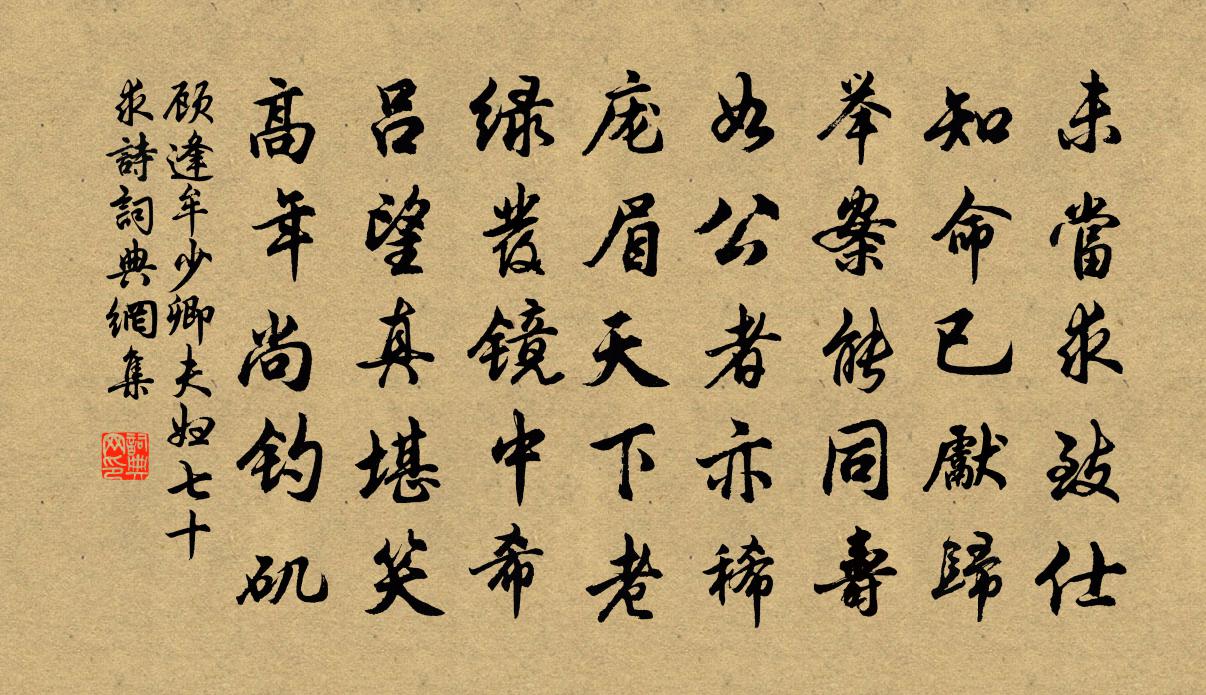 未當求致仕
知命已獻歸
举案能同壽
如公者亦稀
庞眉天下老
绿發镜中希
吕望真堪笑
高年尚钓矶
顾逢牟少卿夫妇七十
求詩詞典網集
詞典
网印